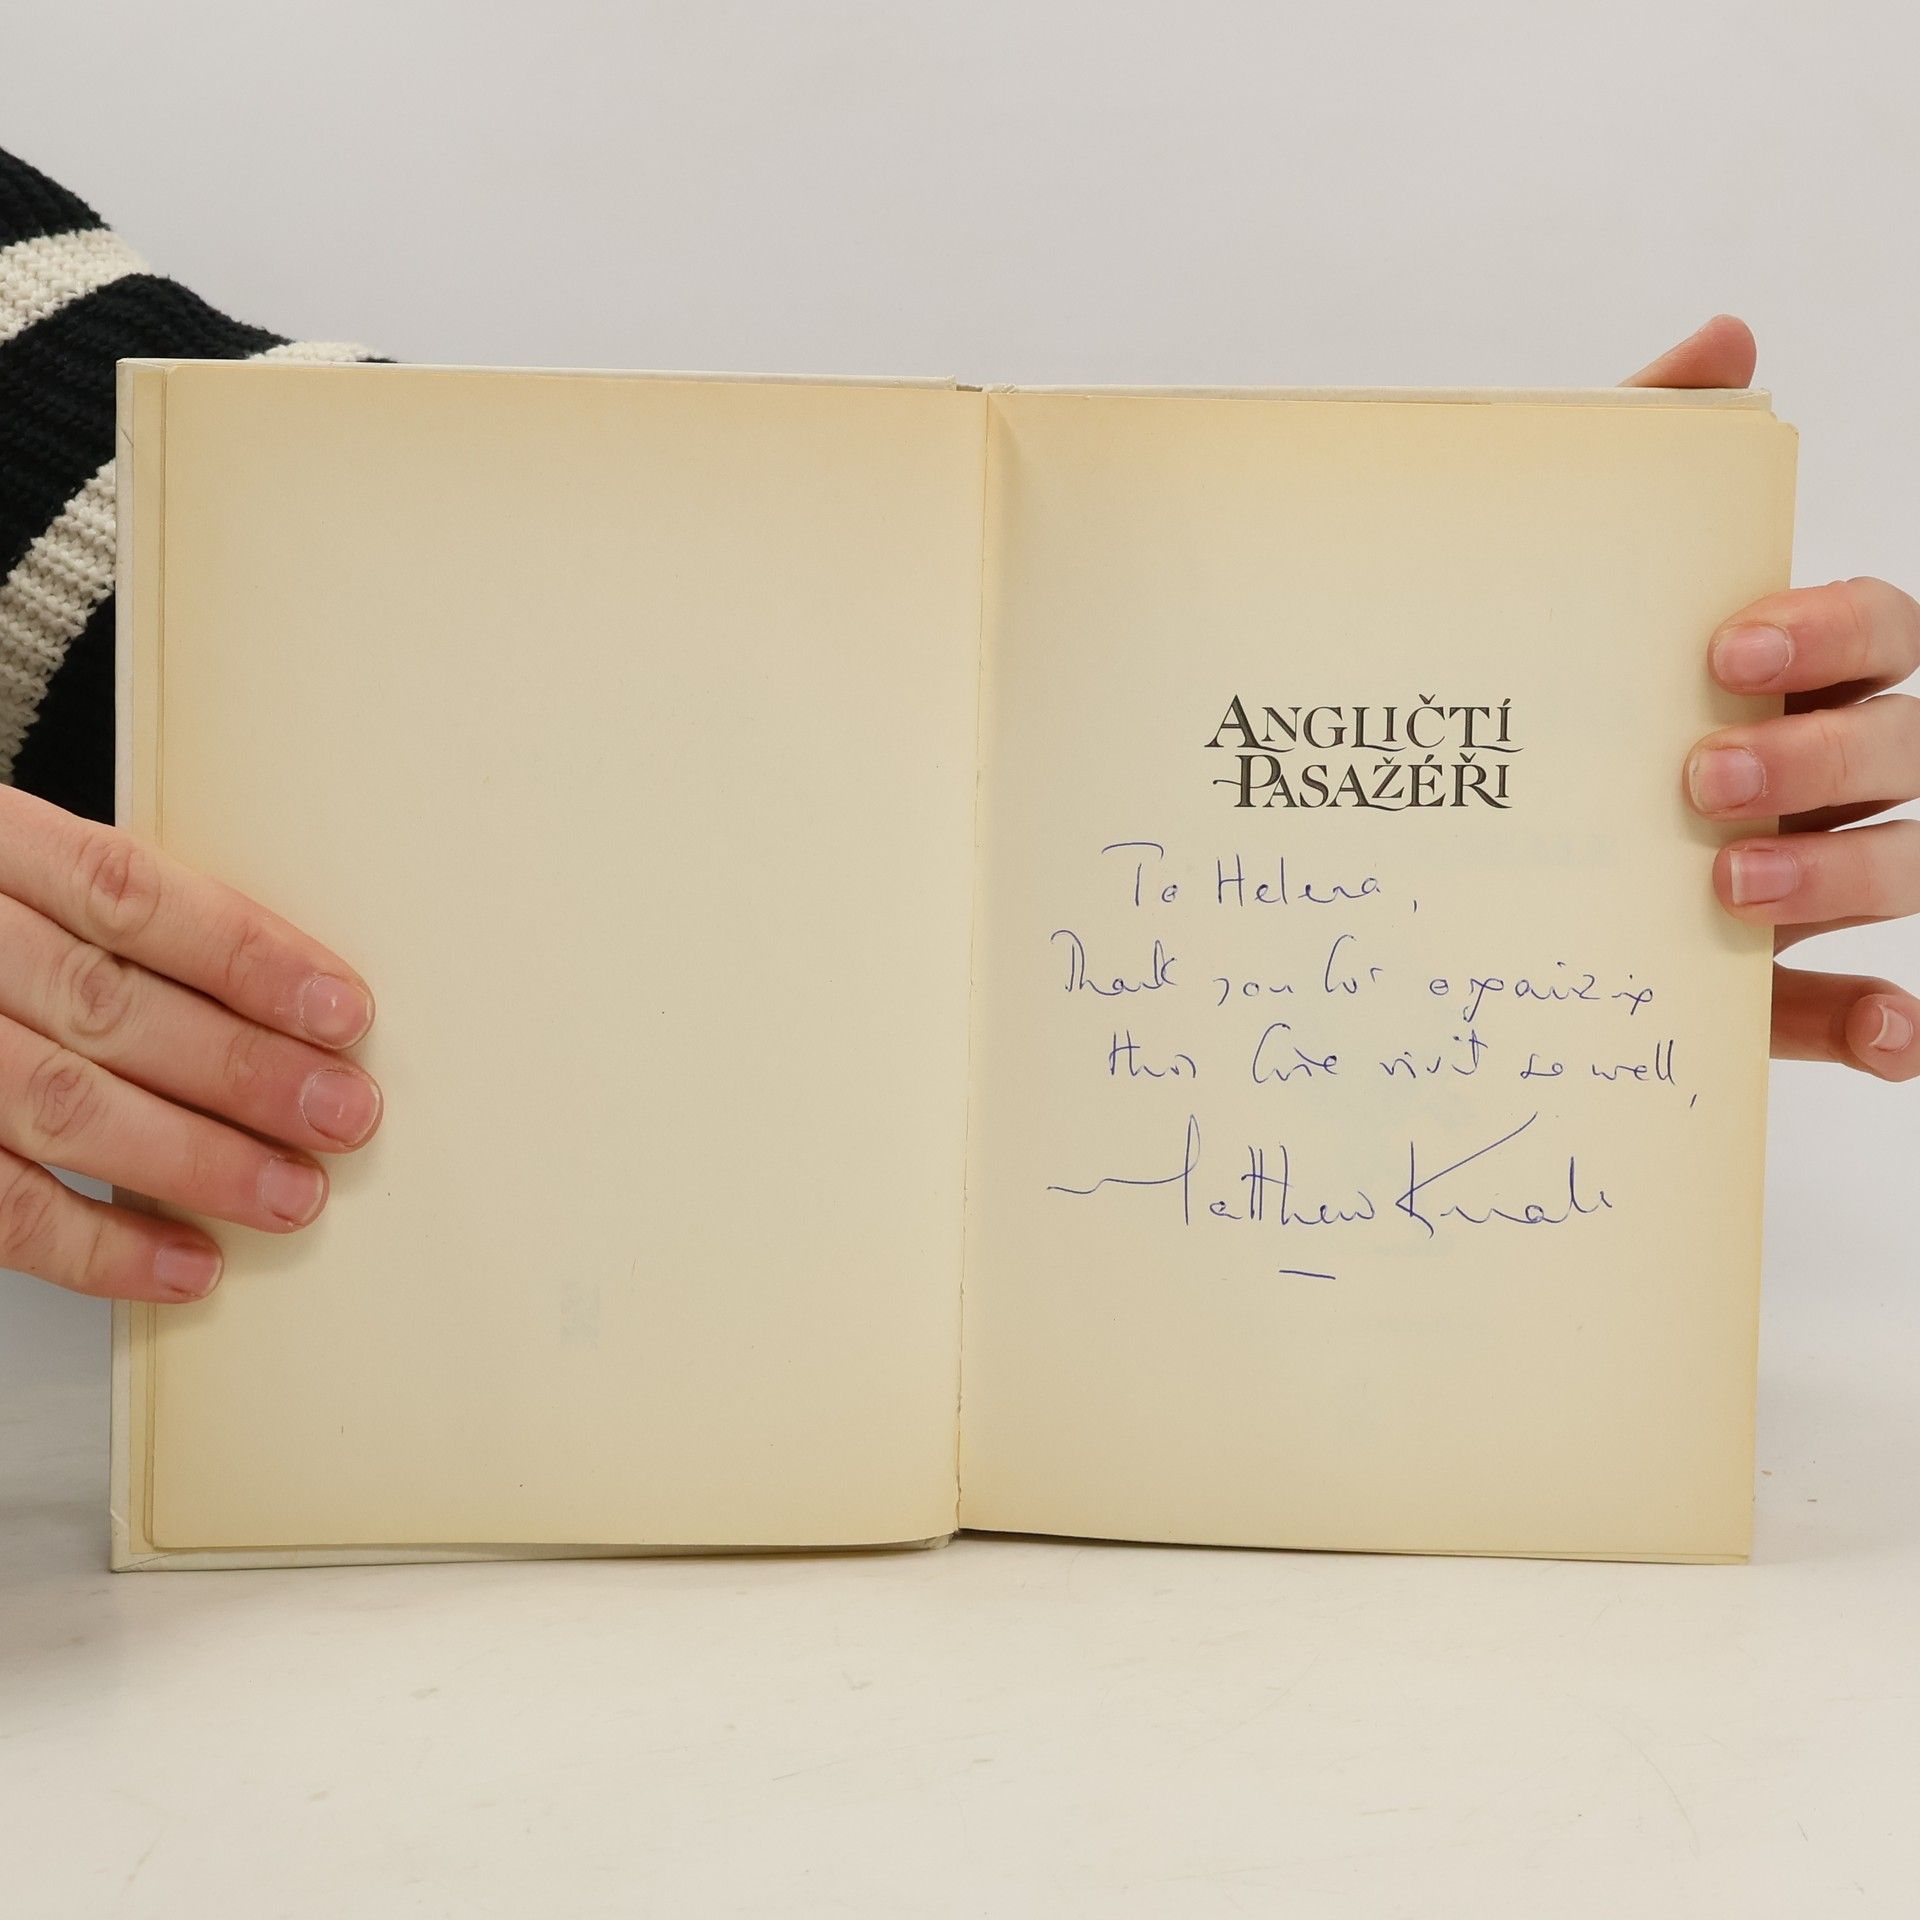 ANGLIČTÍ
PASAŽÉŘI
To Helena,
Thank you for organizing
this fine visit so well,
Matthew Kneale